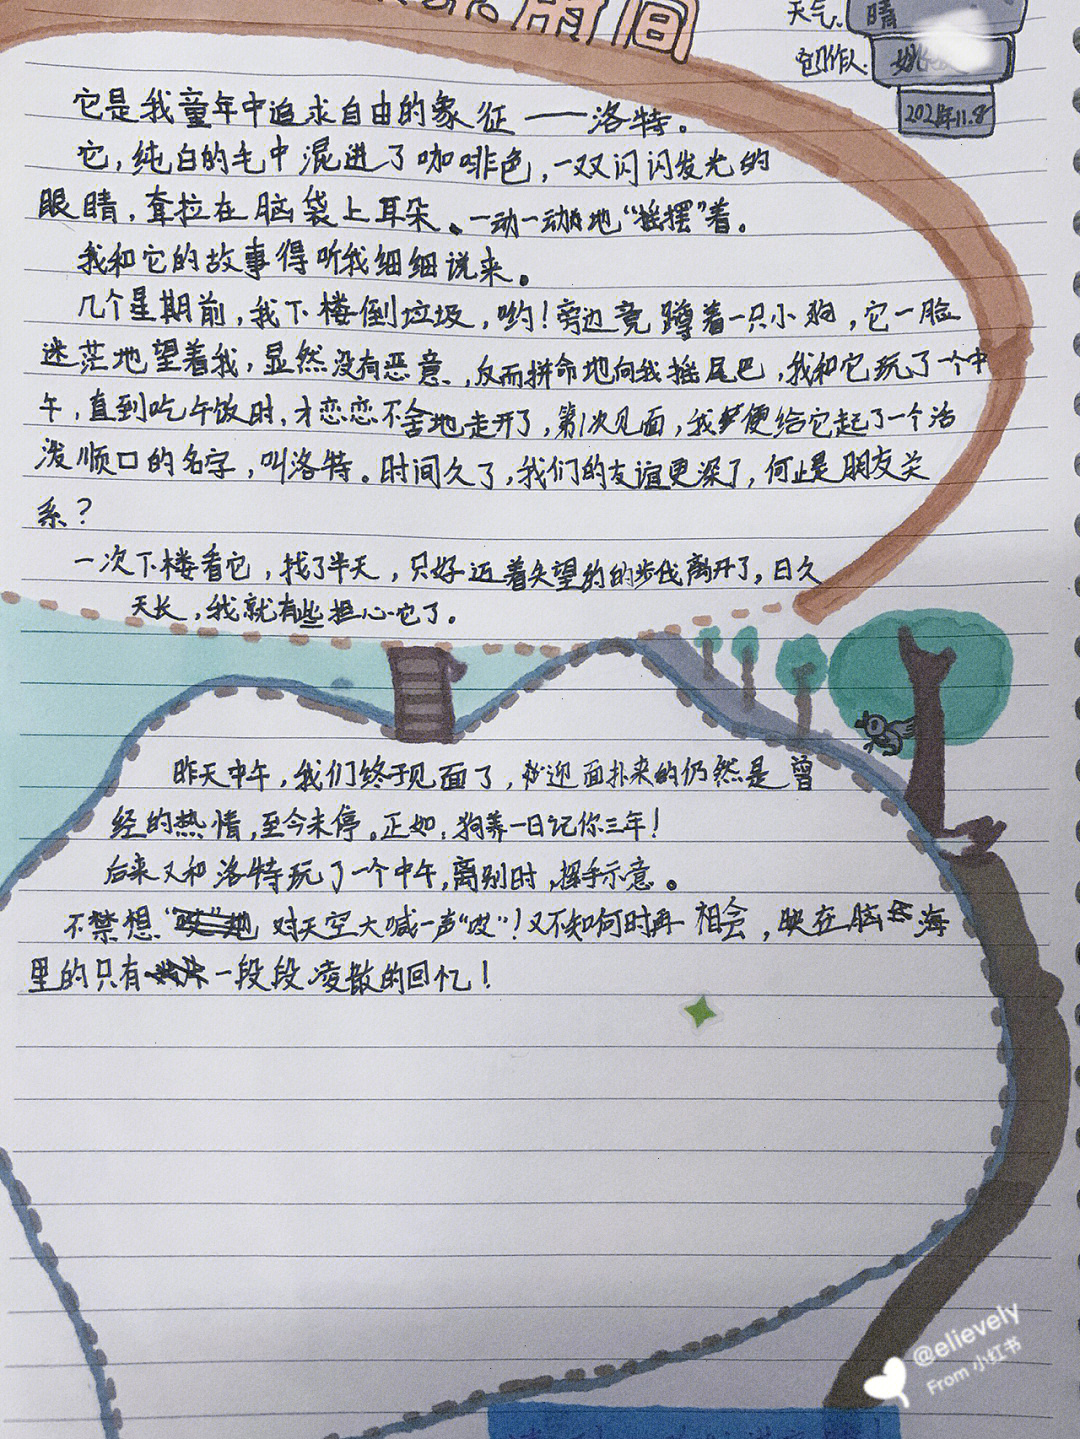 时间
天气:晴
创作人:姚
2021年11.8
它是我童年中追求自由的象征——洛特。
它,纯白的毛中混进了咖啡色,一双闪闪发光的
眼睛,耷拉在脑袋上耳朵、一动一动地“摇摆”着。
我和它的故事得听我细细说来。
几个星期前,我下楼倒垃圾,哟!旁边竟蹲着一只小狗,它一脸
迷茫地望着我,显然没有恶意,反而拼命地向我摇尾巴,我和它玩了一个中
午,直到吃午饭时,才恋恋不舍地走开了,第1次见面,我便给它起了一个活
泼顺口的名字,叫洛特。时间久了,我们的友谊更深了,何止是朋友关
系?
一次下楼看它,找了半天,只好迈着失望的步伐离开了,日久
天长,我就有些担心它了。
昨天中午,我们终于见面了,迎面扑来的仍然是曾
经的热情,至今未停。正如,狗养一日记你三年!
后来又和洛特玩了一个中午,离别时,挥手示意。
不禁想 对天空大喊一声“哎”!又不知何时再相会,映在脑海
里的只有一段段凌散的回忆!
@elievely
From 小红书